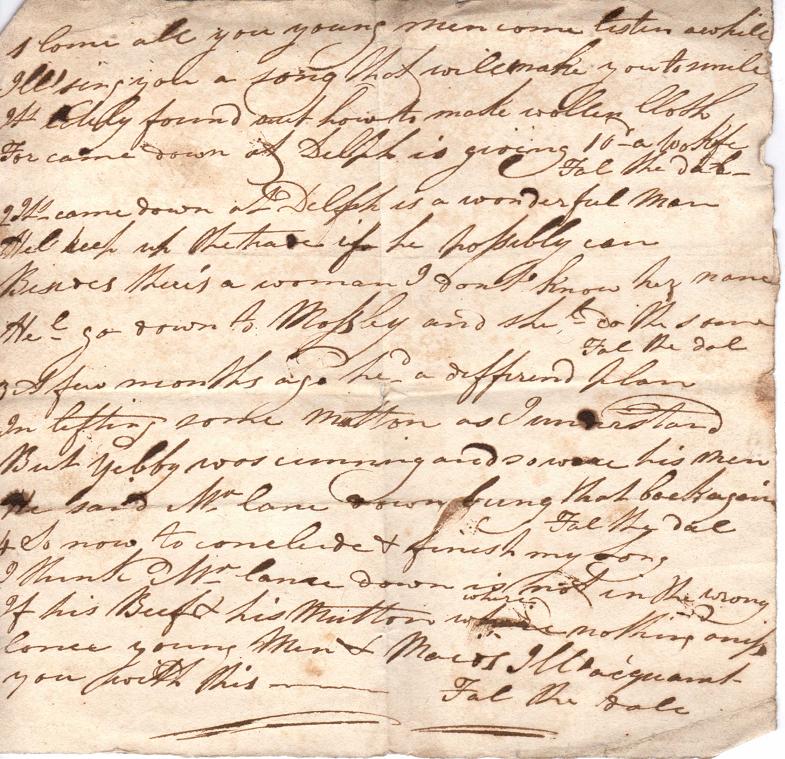 1 Come all you young men come listen awhile
I'll sing you a song that will make you to smile
It's lately found out how to make wollen Cloth
For came down at Delph is giving 10d a
Fal the dal
2 Mr came down at Delph is a wonderful Man
He'l keep up the trade if he possibly can
Besides there's a woman I don't know her name
He'l go down to Mossley and she'll do the same
Fal the dal
3 A few months ago he'd a differend plan
In lifting some mutton as I understand
But Yibby was cunning and so were his men
He said Mr lane down bring that back again
Fal the dal
4 So now to conclude & finish my song
I think Mr lane down is not in the wrong
If his Beef & his Mutton where nothing amis
Come young Men & Maids I'll acquaint
you with this
Fal the dale